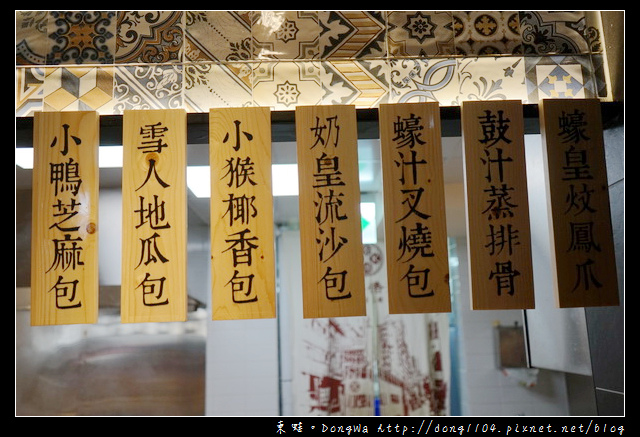 小鴨芝麻包
雪人地瓜包
小猴椰香包
奶皇流沙包
蠔汁叉燒包
鼓汁蒸排骨
蠔皇炆鳳爪
東蛙。DongWa http://dong1104.pixnet.net/blog